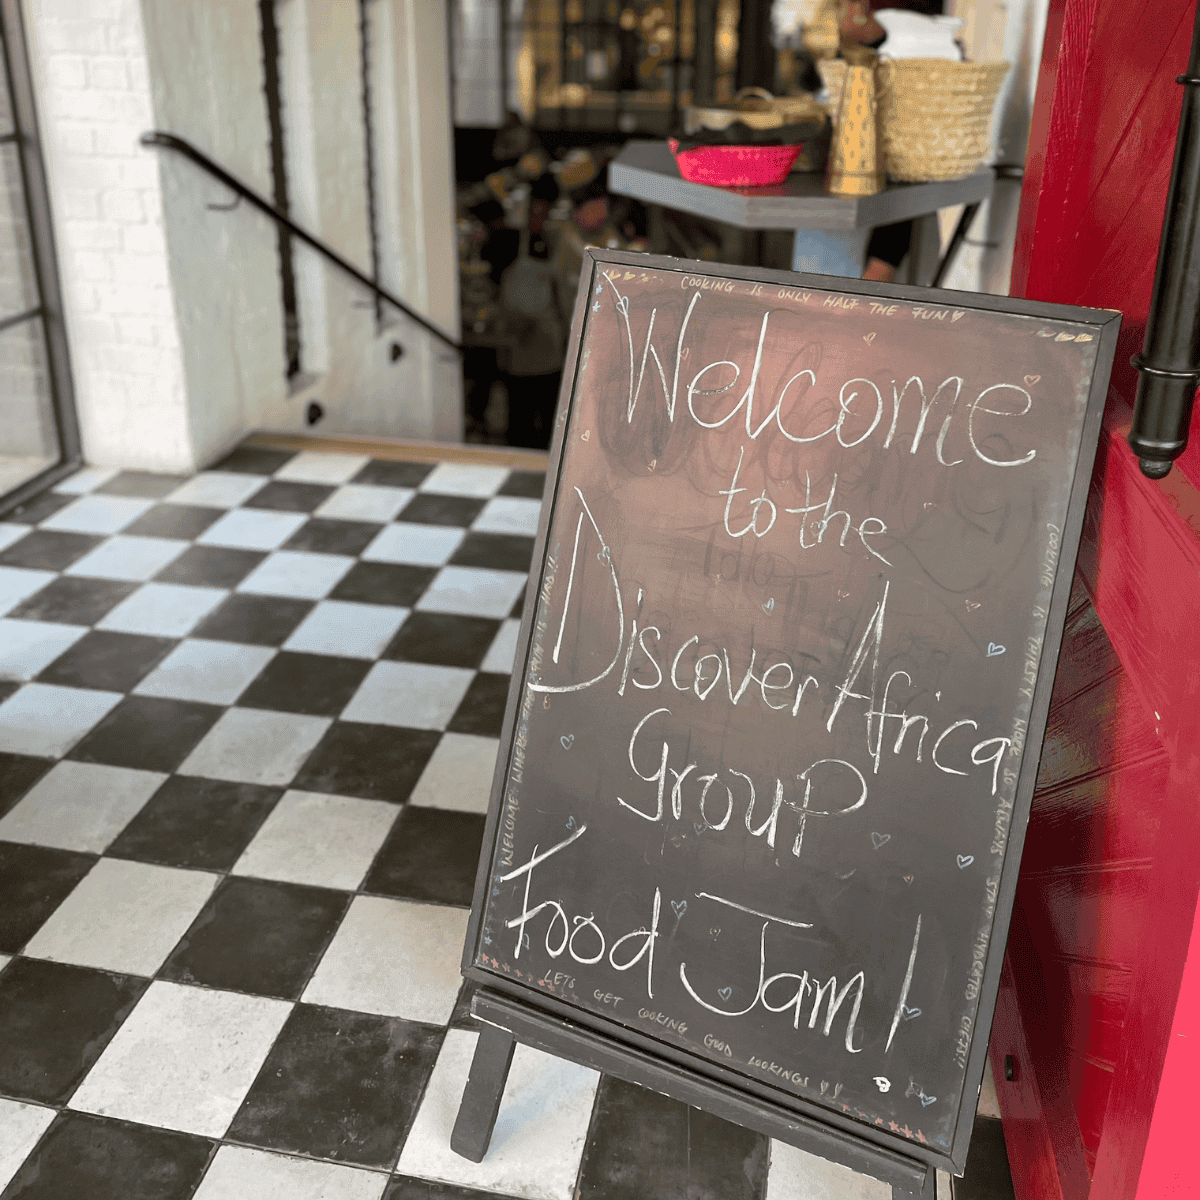 COOKING IS ONLY HALF THE FUN
Welcome
to the
Discover Africa
Group
Food Jam!
LETS GET COOKING GOOD LOOKINGS !!
COOKING IS THIRSTY WORK SO ALWAYS STAY HYDRATED CHEFS!!
WELCOME WHERE FUN IS HAD!!